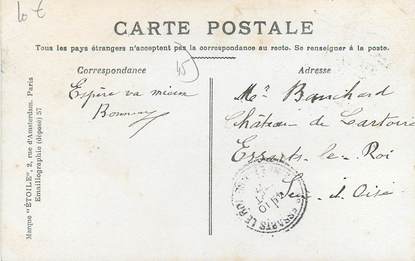 10 €
CARTE POSTALE
Tous les pays étrangers n'acceptent pas la correspondance au recto. Se renseigner à la poste.
Correspondance
45
Espère va mieux
Adresse
Mr Banchard
Château de
Essarts-le-Roi
Seine-et-Oise
ESSARTS LE ROI
Marque "ÉTOILE", 2, rue d'Amsterdam, Paris
Emaillographie (déposé) 57